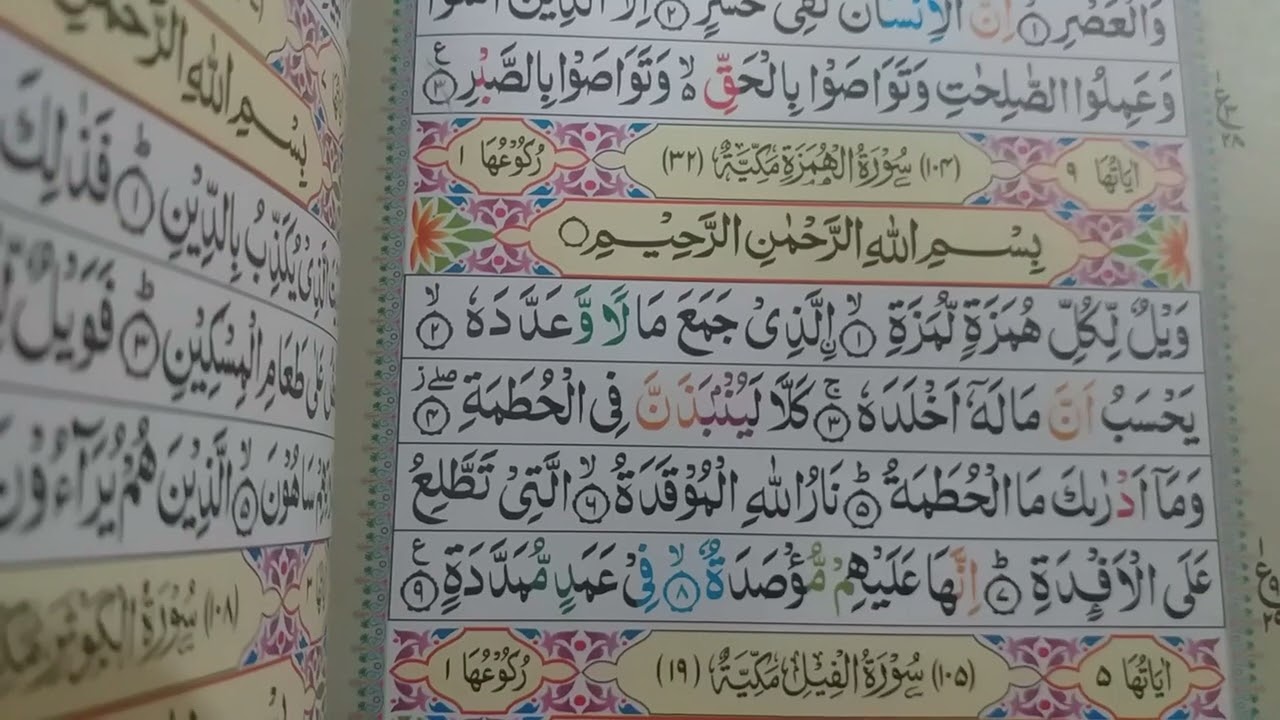 وَالْعَصْرِ ۙ﴿۱﴾ اِنَّ الْاِنْسَانَ لَفِیْ خُسْرٍ ۙ﴿۲﴾ اِلَّا الَّذِیْنَ اٰمَنُوْا
وَعَمِلُوا الصّٰلِحٰتِ وَتَوَاصَوْا بِالْحَقِّ ۙ وَتَوَاصَوْا بِالصَّبْرِ ﴿۳﴾ ع
اٰیَاتُهَا ۹ (۱۰۴) سُوْرَةُ الْهُمَزَةِ مَكِّیَّةٌ (۳۲) رُكُوْعُهَا ۱
بِسْمِ اللّٰهِ الرَّحْمٰنِ الرَّحِیْمِ ○
وَیْلٌ لِّكُلِّ هُمَزَةٍ لُّمَزَةِ ۙ﴿۱﴾ اِ۟لَّذِیْ جَمَعَ مَالًا وَّعَدَّدَهٗ ۙ﴿۲﴾
یَحْسَبُ اَنَّ مَالَهٗۤ اَخْلَدَهٗ ۚ﴿۳﴾ كَلَّا لَیُنْۢبَذَنَّ فِی الْحُطَمَةِ ؗۖ﴿۴﴾
وَمَاۤ اَدْرٰىكَ مَا الْحُطَمَةُ ؕ﴿۵﴾ نَارُ اللّٰهِ الْمُوْقَدَةُ ۙ﴿۶﴾ الَّتِیْ تَطَّلِعُ
عَلَی الْاَفْـِٕدَةِ ؕ﴿۷﴾ اِنَّهَا عَلَیْهِمْ مُّؤْصَدَةٌ ۙ﴿۸﴾ فِیْ عَمَدٍ مُّمَدَّدَةٍ ﴿۹﴾ ع
اٰیَاتُهَا ۵ (۱۰۵) سُوْرَةُ الْفِیْلِ مَكِّیَّةٌ (۱۹) رُكُوْعُهَا ۱
بِسْمِ اللّٰهِ الرَّحْمٰنِ
الَّذِیْ یُكَذِّبُ بِالدِّیْنِ ؕ﴿۱﴾ فَذٰلِكَ
عَلٰی طَعَامِ الْمِسْكِیْنِ ؕ﴿۳﴾ فَوَیْلٌ
سَاهُوْنَ ۙ﴿۵﴾ الَّذِیْنَ هُمْ یُرَآءُوْنَ
(۱۰۸) سُوْرَةُ الْكَوْثَرِ